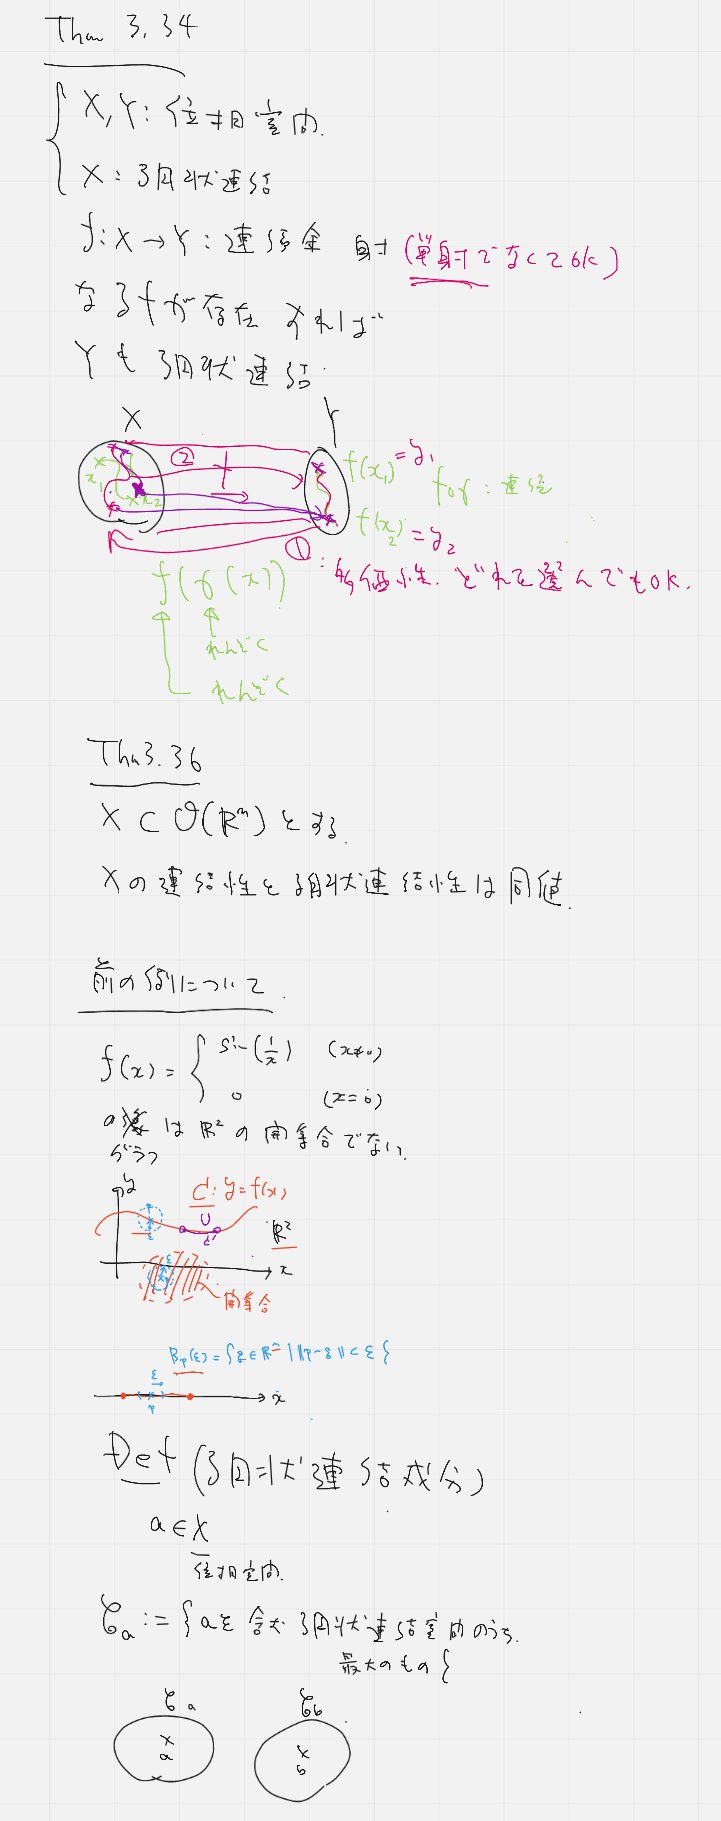 Thm 3.34
X, Y : 位相空間.
X : 弧状連結
f : X → Y : 連続全射 (単射でなくてOK)
なるfが存在すれば
Yも弧状連結.
X Y
② f
f(x₁) = y₁
x₁ x₂
f∘γ : 連続
f(x₂) = y₂
① : 多価性. どれを選んでもOK.
f(γ(x))
れんぞく
れんぞく
Thm 3.36
X ⊂ O(ℝⁿ) とする.
Xの連結性と弧状連結性は同値.
前の例について.
f(x) = { sin(1/x) (x≠0)
0 (x=0)
の
グラフ
は ℝ² の開集合でない.
y
C : y = f(x)
U
C'
ℝ²
ε
x
開集合
B_p(ε) = {q ∈ ℝⁿ | ‖p-q‖ < ε}
ε
p
x
Def (弧状連結成分)
a ∈ X
位相空間.
C_a := {aを含む弧状連結空間のうち.
最大のもの}
C_a C_b
x x
a b